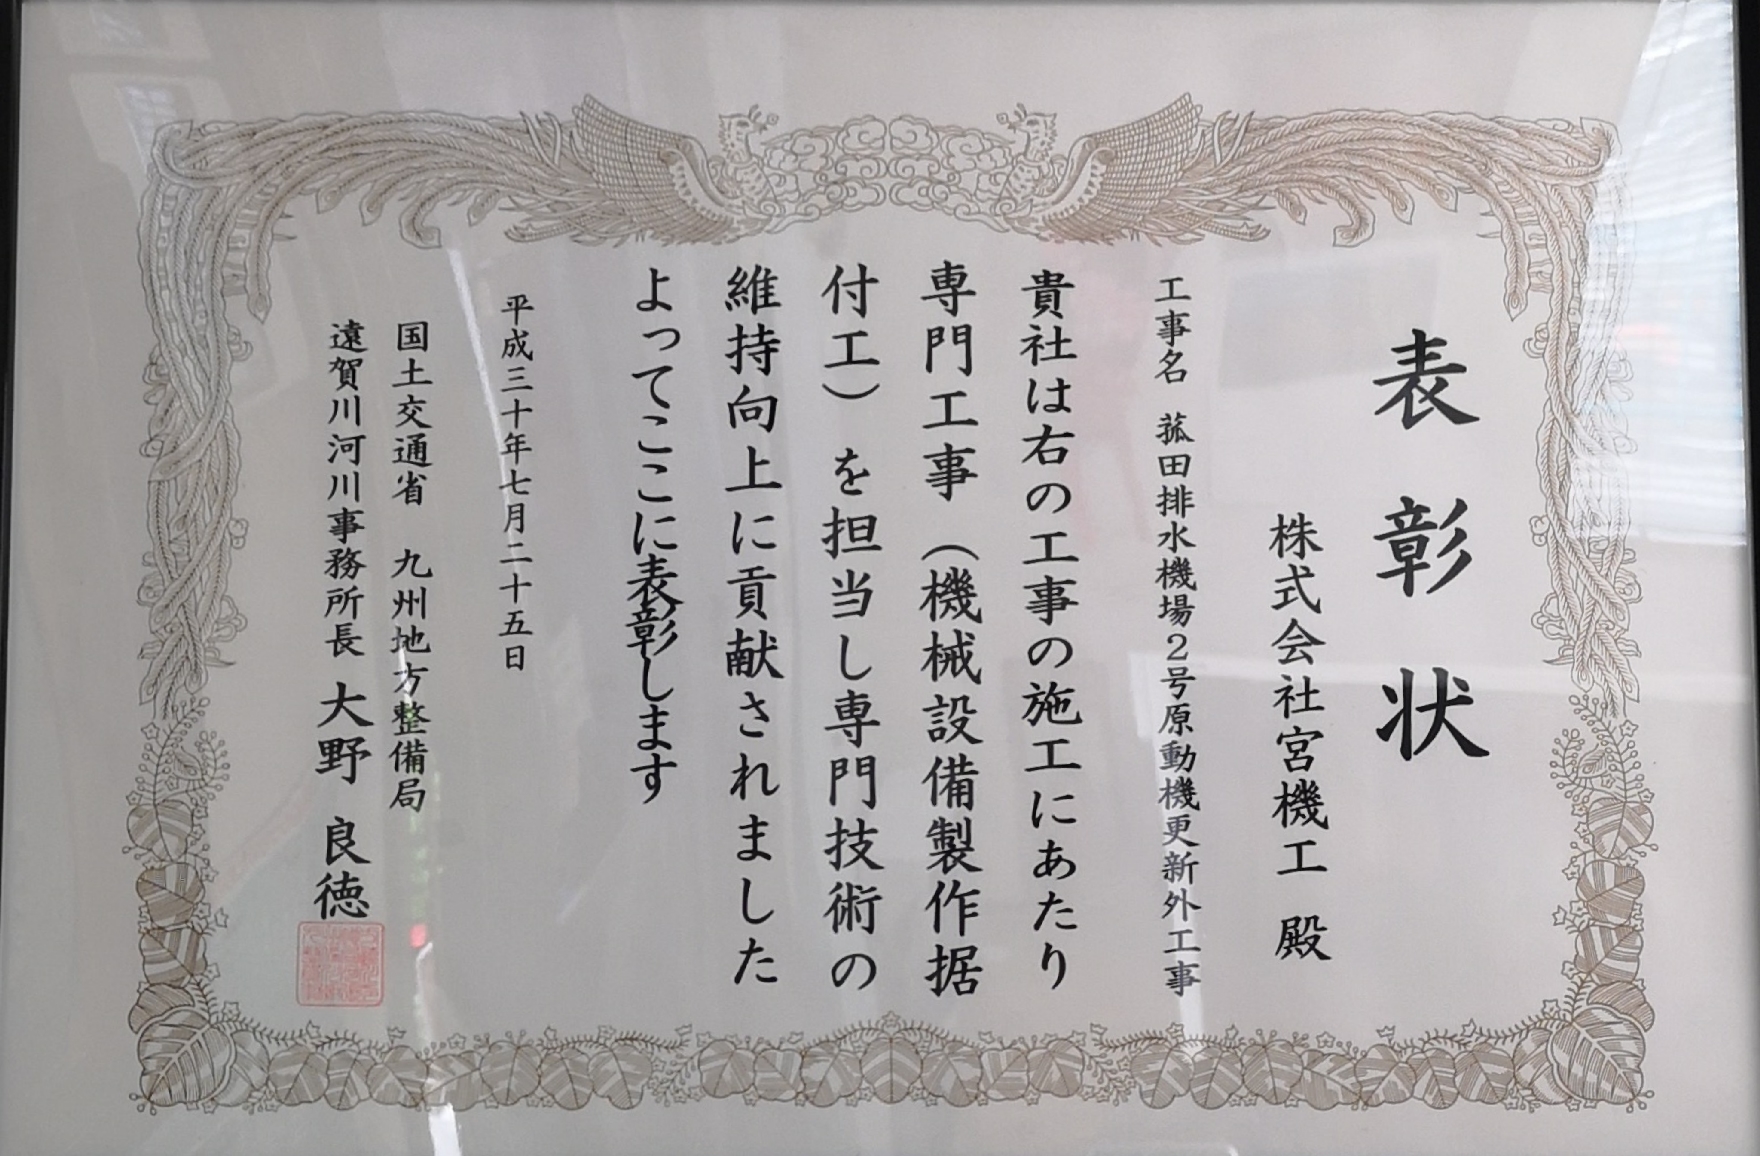 表彰状
株式会社宮機工 殿
工事名 菰田排水機場2号原動機更新外工事
貴社は右の工事の施工にあたり
専門工事（機械設備製作据
付工）を担当し専門技術の
維持向上に貢献されました
よってここに表彰します
平成三十年七月二十五日
国土交通省 九州地方整備局
遠賀川河川事務所長 大野 良徳